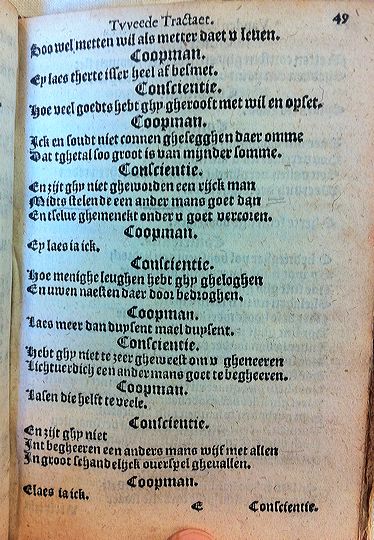 Tvveede Tractaet. 49
Soo wel metten wil als metter daet v leuen.
Coopman.
Ey laes therte isser heel af besmet.
Conscientie.
Hoe veel goedts hebt ghy gherooft met wil en opset.
Coopman.
Ick en soudt niet connen ghesegghen daer omme
Dat tghetal soo groot is van mijnder somme.
Conscientie.
En zijt ghy niet gheworden een rijck man
Midts stelende een ander mans goet dan
En tselue ghemenckt onder v goet vercoren.
Coopman.
Ey laes ia ick.
Conscientie.
Hoe menighe leughen hebt ghy gheloghen
En uwen naesten daer door bedroghen.
Coopman.
Laes meer dan duysent mael duysent.
Conscientie.
Hebt ghy niet te zeer gheweest om v gheneeren
Lichtuerdich een ander mans goet te begheeren.
Coopman.
Lasen die helft te veele.
Conscientie.
En zijt ghy niet
Int begheeren een anders mans wijf met allen
In groot schandelijck ouerspel gheuallen.
Coopman.
Elaes ia ick.
Conscientie.